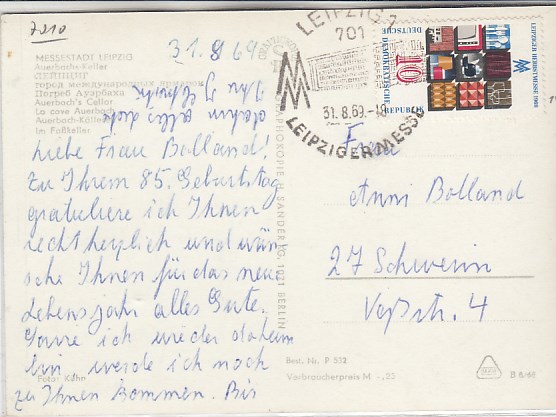 7210
31.8.69
MESSESTADT LEIPZIG
Auerbachs-Keller
ЛЕЙПЦИГ
город международных ярмарок
Погреб Ауэрбаха
Auerbach's Cellar
La cave Auerbach
Auerbach-Källare
Im Faßkeller
Liebe Frau Bolland!
Zu Ihrem 85. Geburtstag
gratuliere ich Ihnen
recht herzlich und wün-
sche Ihnen für das neue
Lebensjahr alles Gute.
Sowie ich wieder daheim
bin werde ich noch
zu Ihnen kommen. Bis
dahin alles
Foto: Kühn
LEIPZIG 2
701
31.8.69
LEIPZIGER MESSE
DEUTSCHE
DEMOKRATISCHE
REPUBLIK
10
LEIPZIGER HERBSTMESSE 1969
Frau
Anni Bolland
27 Schwerin
Voßstr. 4
H. SANDER KG, 1071 BERLIN
Best. Nr. P 532
Verbraucherpreis M -,20